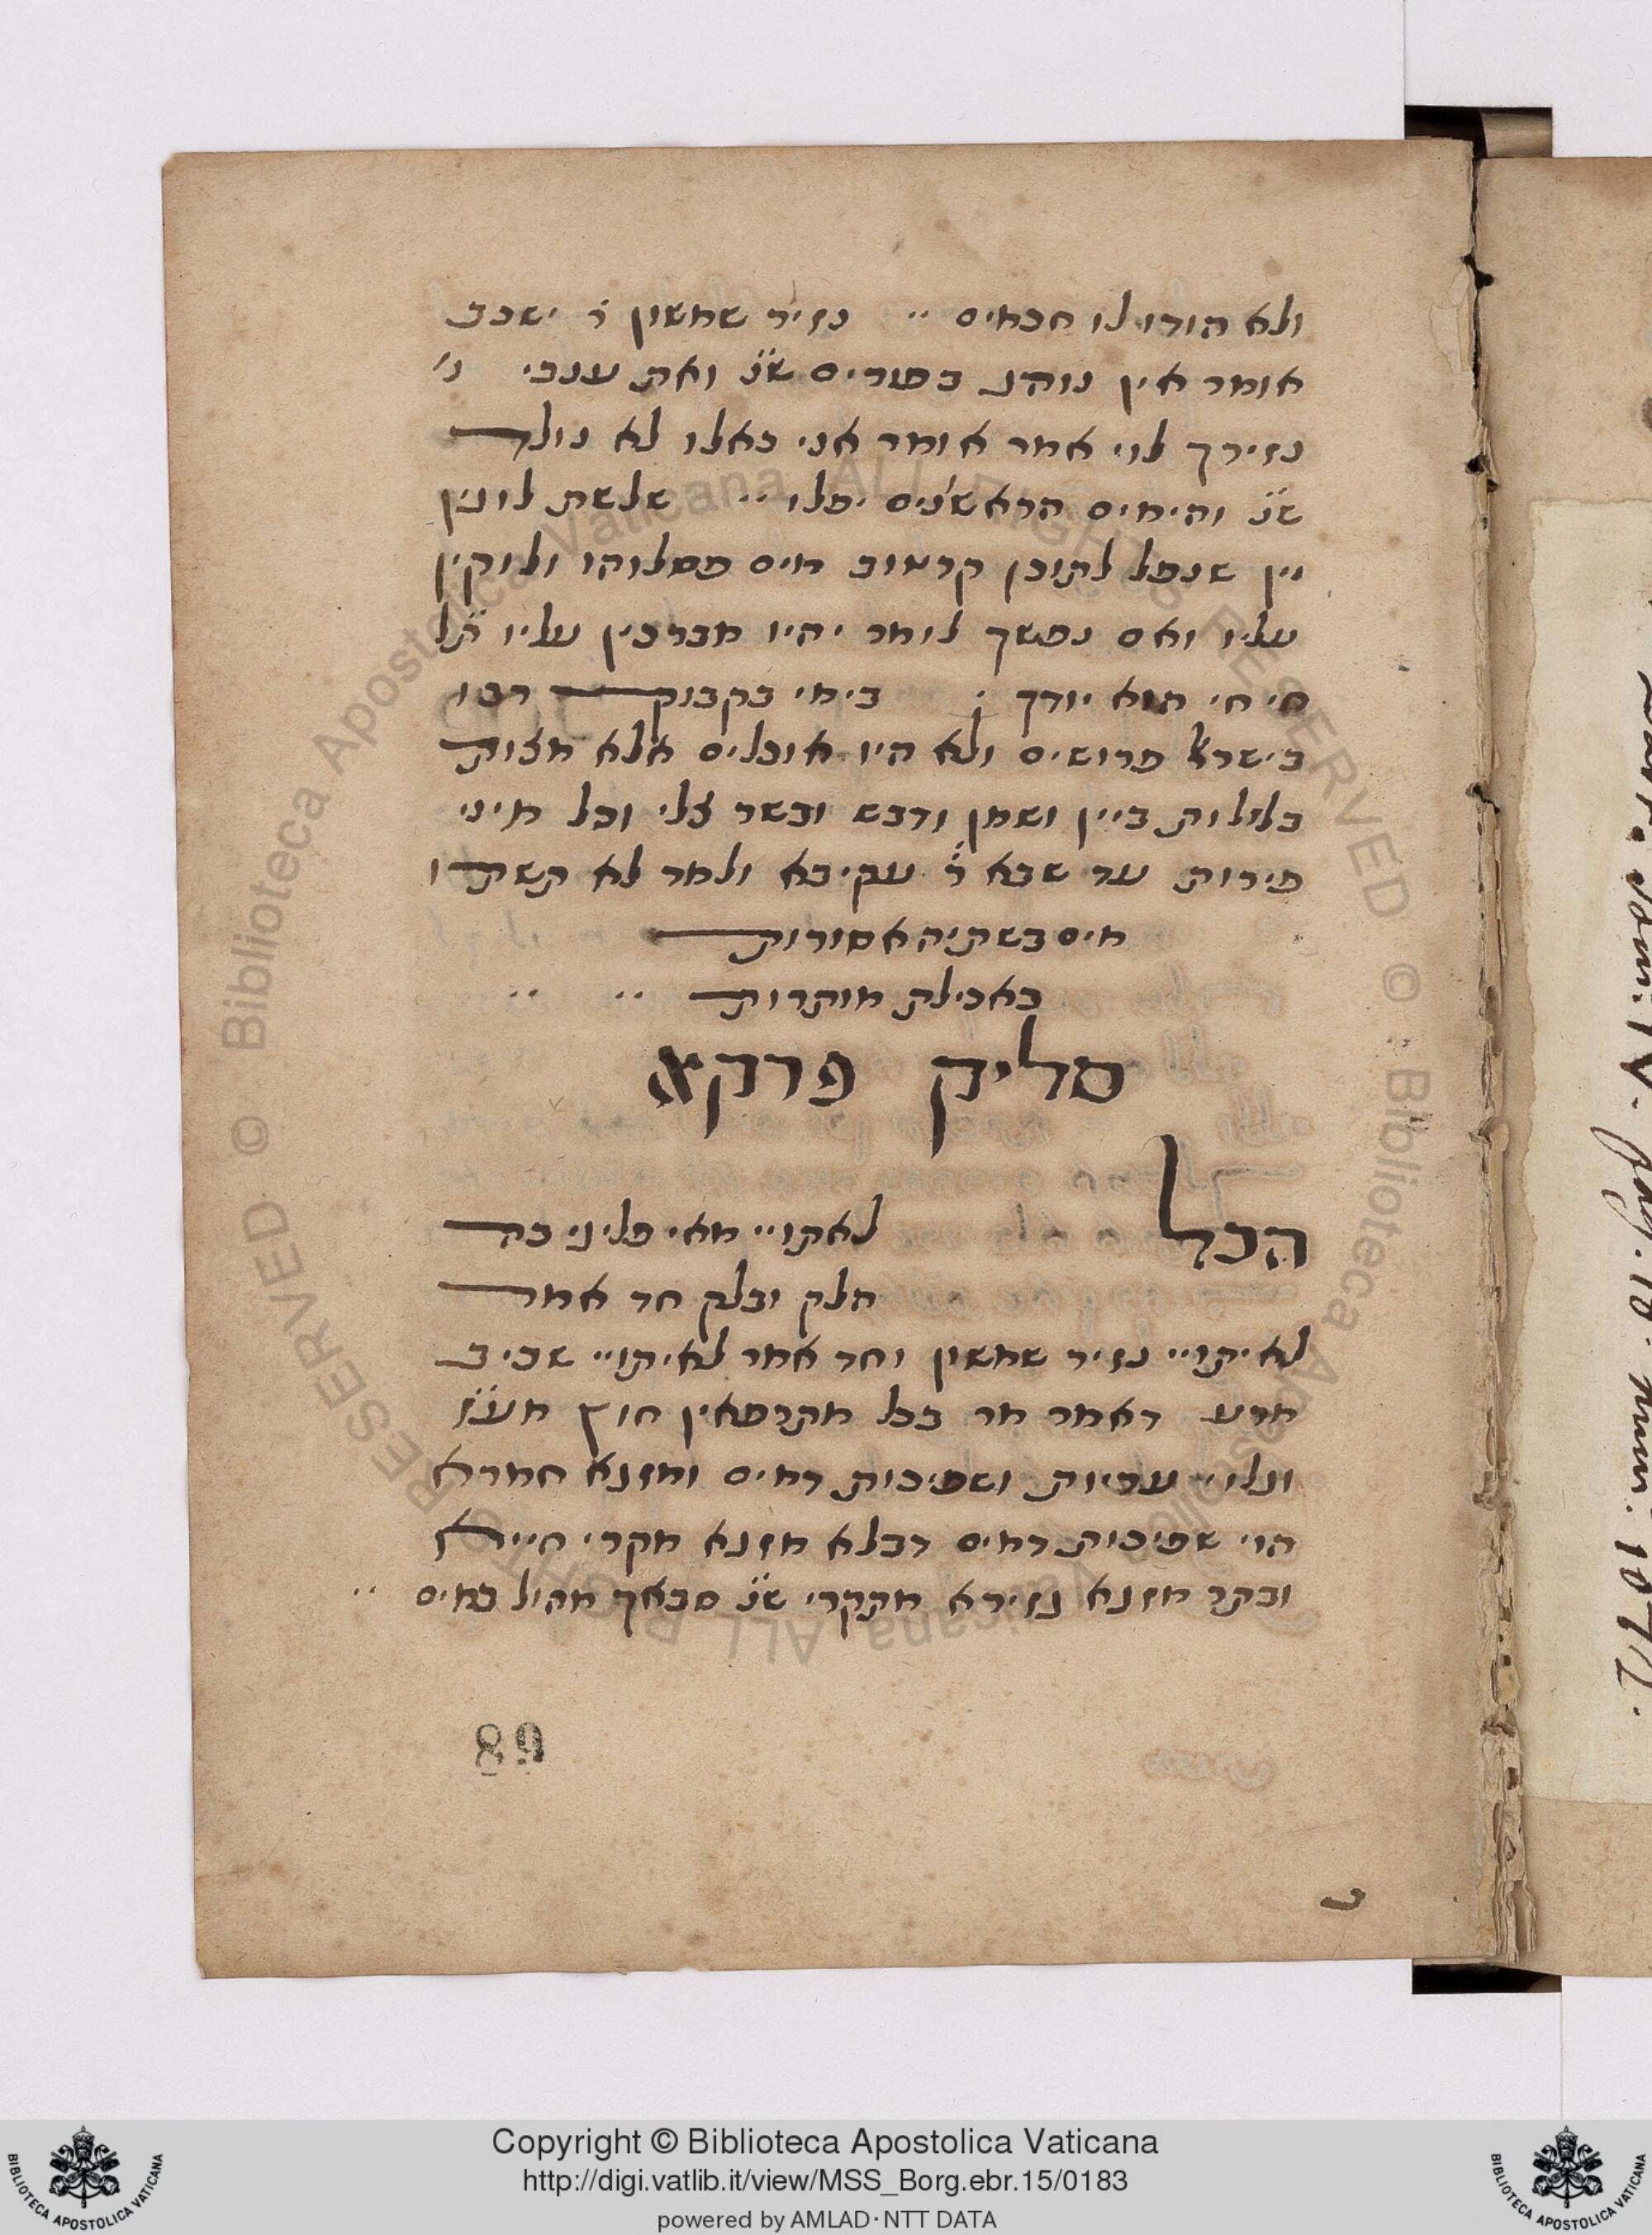 ולא הודו לו חכמים ·· נזיר שמשון ר׳ ישבב
אומר אין נוהג בפורים שנ׳ ואת ענבי נ׳
נזירך לוי אמר אומר אני כאלו לא נולד
שנ׳ והימים הראשונים יפלו ·· שלשת לוגין
יין שנפל לתוכן קרטוב מים פסלוהו ולוקין
עליו ואם נפשך לומר יהיו מברכין עליו ת״ל
חי חי הוא יודך : בימי בקבוק רבו
בישראל פרושים ולא היו אוכלים אלא מצות
בלולות ביין ושמן ודבש ובשר צלי וכל מיני
פירות עד שבא ר׳ עקיבא ולמד לא תשתו
מים בשתיה אסורות
באכילה מותרות ·· ··
סליק פרקא
הכל לאתויי מאי פליגי בה
חלק ובלק חד אמר
לאיתויי נזיר שמשון וחד אמר לאיתויי שכיב
מרע דאמר מר בכל מתרפאין חוץ מע״ז
וגלוי עריות ושפיכות דמים ומזגא חמרא
הוי שפיכות דמים דבלא מזגא מקרי חייא
ובתר מזגא נזירא מתקרי שנ׳ סבאך מהול במים ··
89
Copyright © Biblioteca Apostolica Vaticana
http://digi.vatlib.it/view/MSS_Borg.ebr.15/0183
powered by AMLAD·NTT DATA